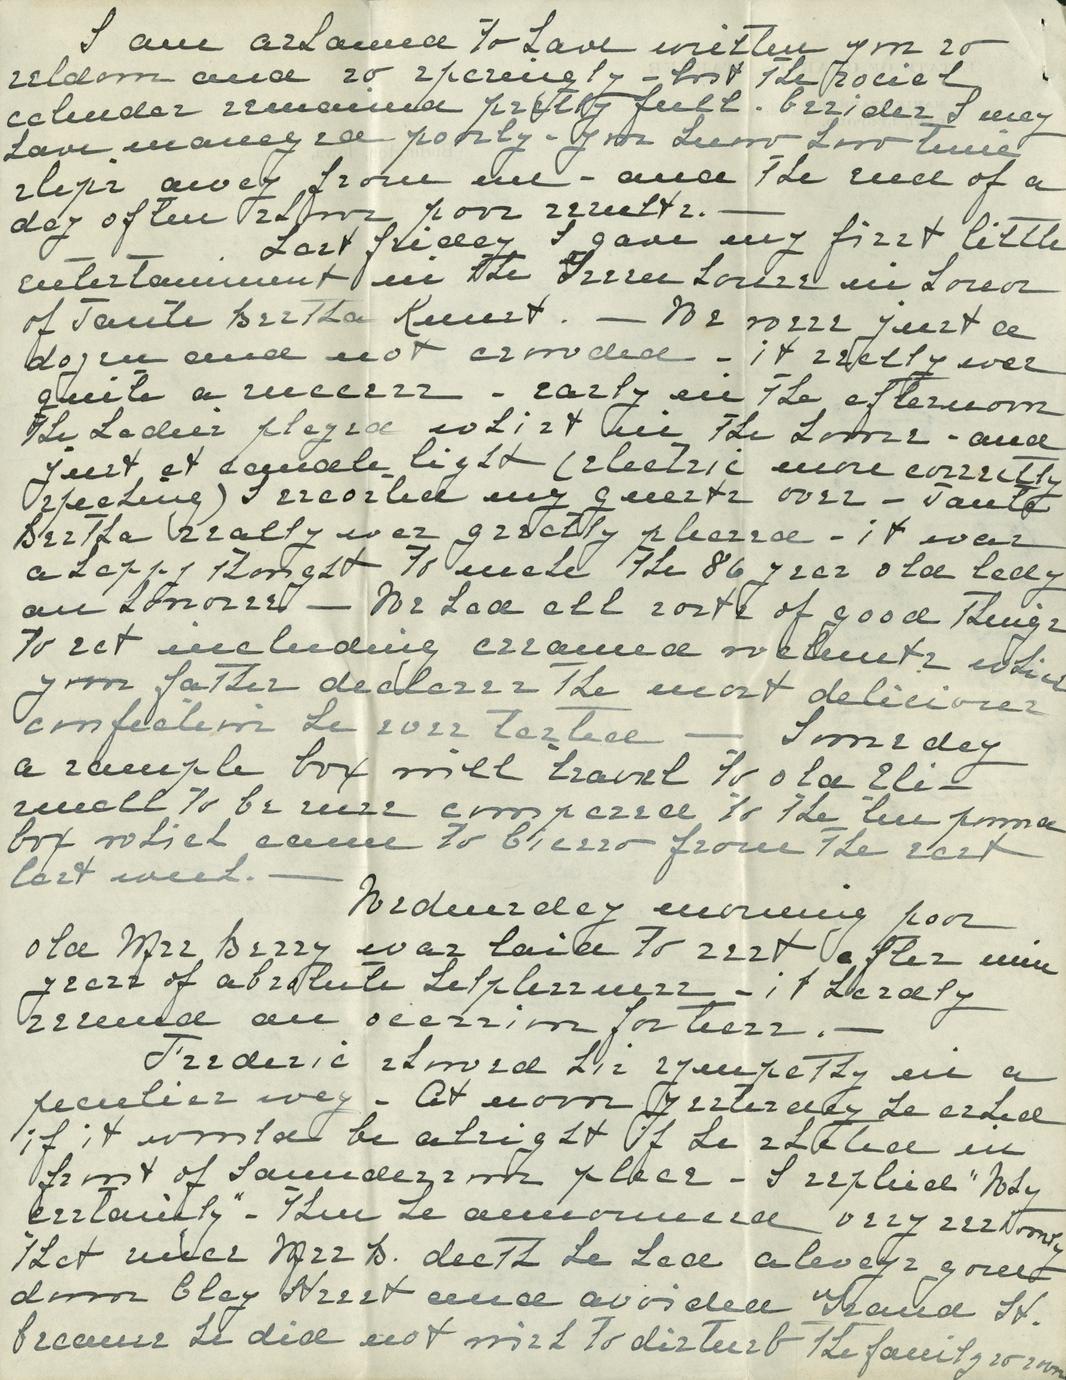 I am ashamed to have written you so
seldom and so sparingly - but the social
calendar remained pretty full. besides I may
have managed poorly - you know how time
slips away from me - and the end of a
day often shows poor results. —
Last friday I gave my first little
entertainment in the Green house in honor
of Tante Bertha Kunst. — We were just a
dozen and not crowded - it really was
quite a success - early in the afternoon
the ladies played whist in the house - and
just at candle light (electric more correctly
speaking) I escorted my guests over - Tante
Bertha really was greatly pleased - it was
a happy thought to make the 86 year old lady
an honoree — We had all sorts of good things
to eat including creamed walnuts which
your father declares the most delicious
confection he ever tasted — Some day
a sample box will travel to old Eli -
small to be sure compared to the ten pound
box which came to from the east
last week. —
Wednesday morning poor
old Mrs Berry was laid to rest after nine
years of absolute helplessness - it hardly
seemed an occasion for tears. —
Frederic showed his sympathy in a
peculiar way - At noon yesterday he asked
if it would be alright if he skated in
front of Saundersons place - I replied "Why
certainly" - Then he announced very seriously
that since Mrs B. death he had always gone
down Clay Street and avoided "Grand St.
because he did not wish to disturb the family so soon